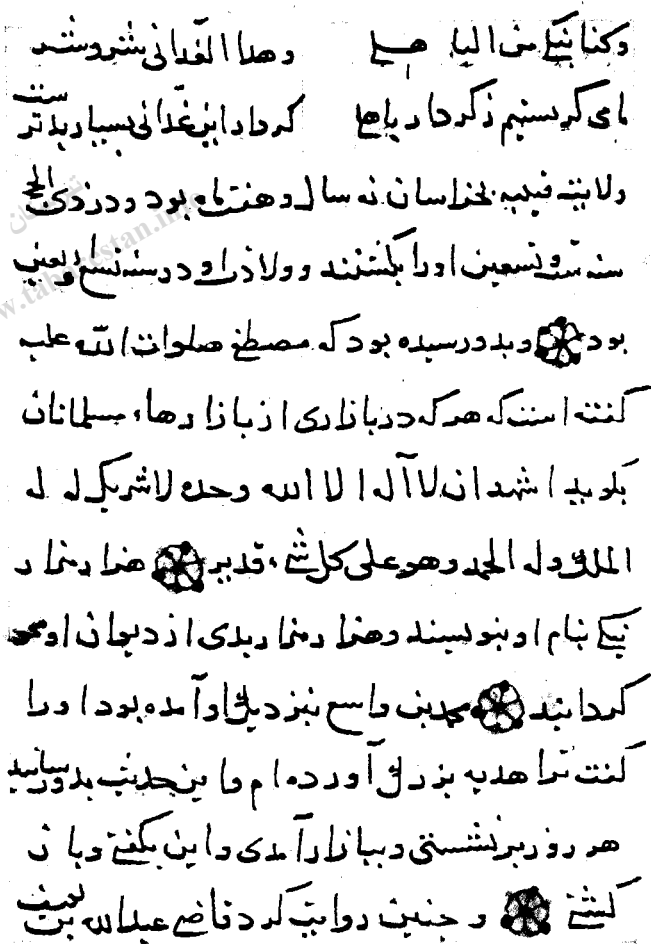 وكنا نبكي من الباهلي وهذا الغداني شر وشر
ما می کریستیم ز کردار باهلی کردار این غدانی بسیار بدتر است
ولایت قتیبه بخراسان نه سال و هفت ماه بود و در ذی الحجه
سنه ست و تسعین او را بکشتند و ولادت او در سنه تسع و اربعین
بود و بدو رسیده بود که مصطفی صلوات الله علیه
کفته است که هر که در بازاری از بازارهاء مسلمانان
بکوید اشهد ان لا اله الا الله وحده لا شریک له له
الملک وله الحمد وهو علی کل شیء قدیر هزار هزار
نیکی بنام او بنویسند و هزار هزار بدی از دیوان او محو
کردانند محمد بن واسع بنزدیک او آمده بود او را
کفت ترا هدیه بزرک آورده ام و این حدیث بدو رسانید
هر روز برنشستی و ببازار آمدی و این بکفتی و باز
کشتی و جنین روایت کرد قاضی عبدالله بن یوسف